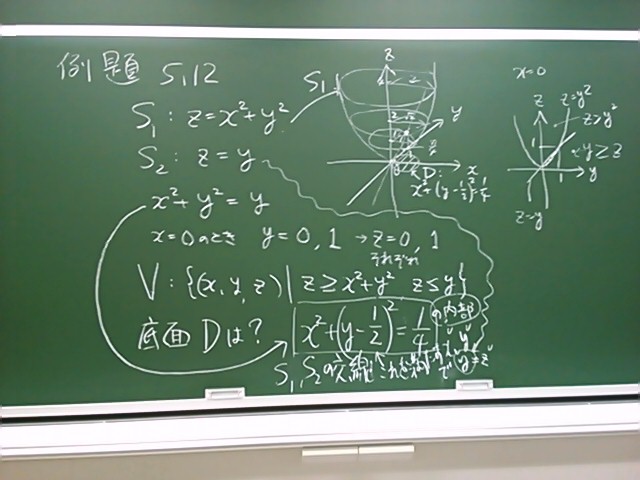 例題 5.12
S₁: z=x²+y²
S₂: z=y
x²+y²=y
x=0のとき y=0,1 →z=0,1
それぞれ
V: {(x,y,z)| z≥x²+y² z≤y}
底面Dは? x²+(y-1/2)²=1/4 の内部
S₁,S₂の交線
S₁
z
y
x
D:
x²+(y-1/2)²=1/4
x=0
z
z=y²
z>y²
y≥z
y
1
1
z=y